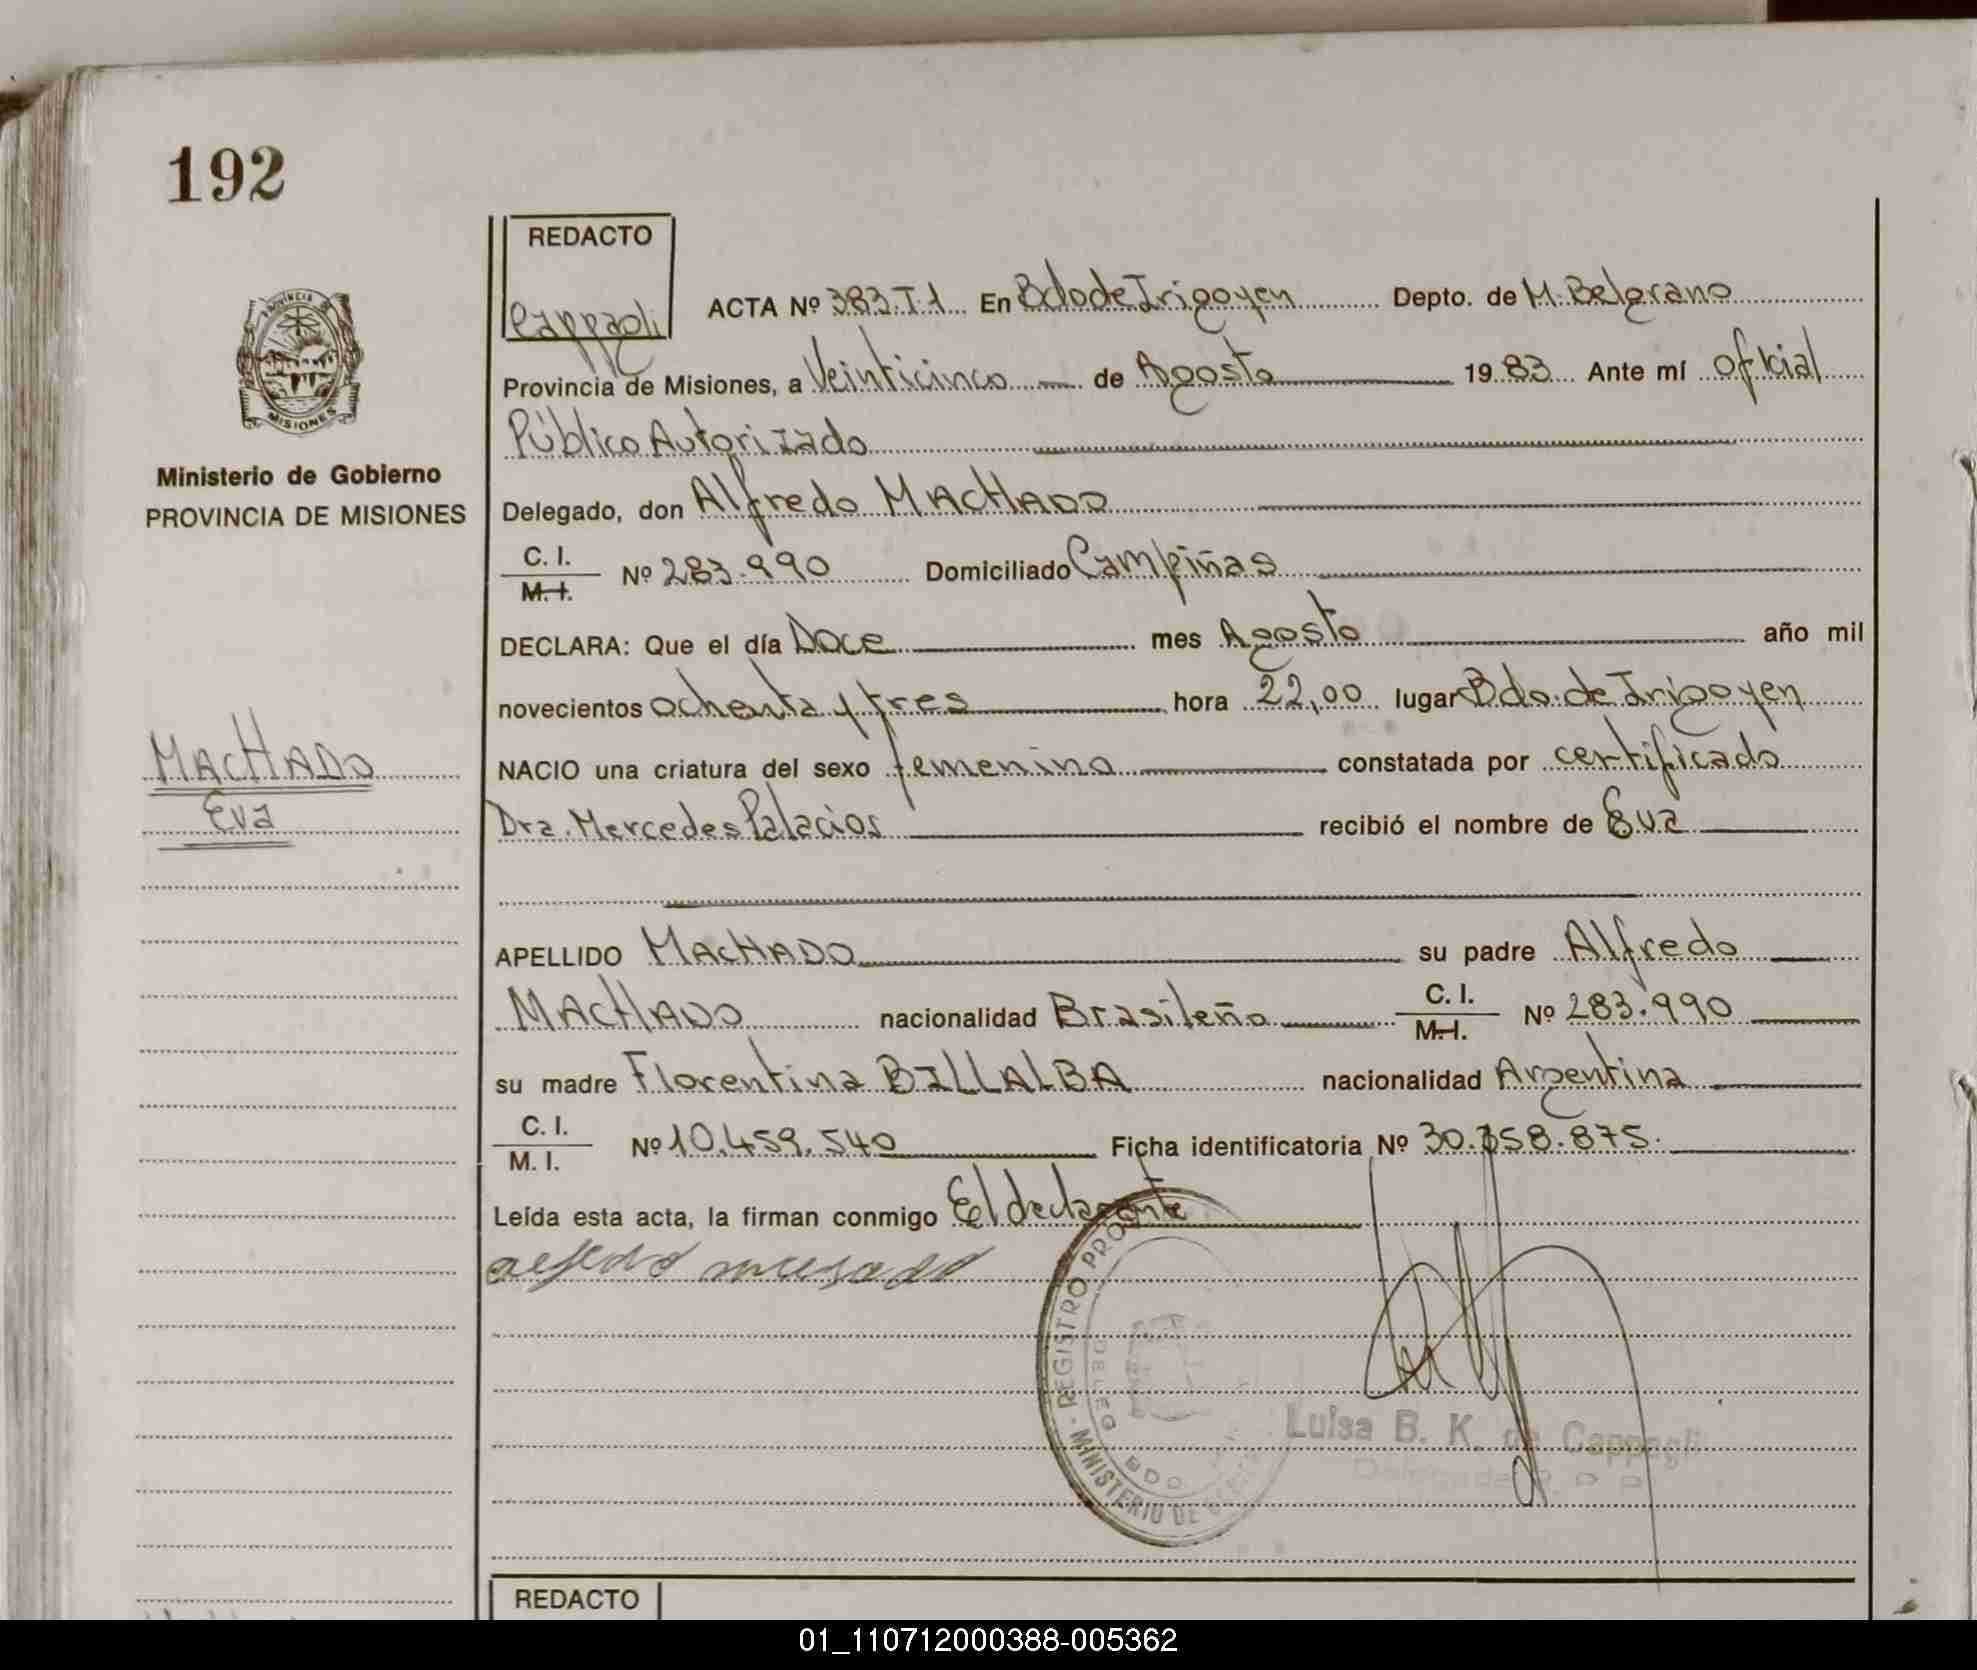 192
REDACTO
Cappagli
ACTA Nº 383.T.1 En Bdo de Irigoyen Depto. de M. Belgrano
Provincia de Misiones, a Veinticinco de Agosto 1983 Ante mí oficial
Público Autorizado
PROVINCIA
MISIONES
Ministerio de Gobierno
PROVINCIA DE MISIONES
Delegado, don Alfredo MACHADO
C. I.
M. I. Nº 283.990 Domiciliado Campiñas
DECLARA: Que el día Doce mes Agosto año mil
novecientos ochenta y tres hora 22,00 lugar Bdo. de Irigoyen
MACHADO
Eva
NACIO una criatura del sexo femenino constatada por certificado
Dra. Mercedes Palacios recibió el nombre de Eva
APELLIDO MACHADO su padre Alfredo
MACHADO nacionalidad Brasileña C. I.
M. I. Nº 283.990
su madre Florentina BILLALBA nacionalidad Argentina
C. I.
M. I. Nº 10.459.540 Ficha identificatoria Nº 30.358.875.
Leída esta acta, la firman conmigo El declarante
REGISTRO
MINISTERIO DE
DELEG
BDO
Luisa B. K. de Cappagli
REDACTO
01_110712000388-005362